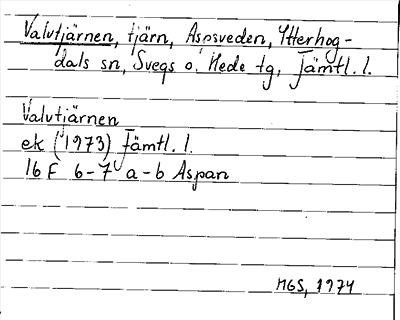 Valvtjärnen, tjärn, Aspsveden, Ytterhog-
dals sn, Svegs o. Hede tg, Jämtl. l.
Valvtjärnen
ek (1973) Jämtl. l.
16 F 6-7 a-b Aspan
MGS, 1974